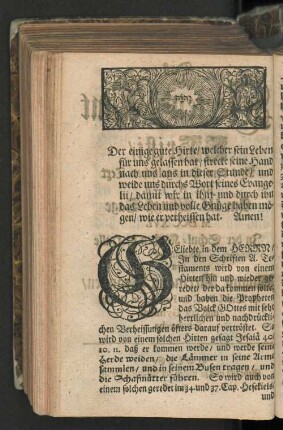 Der einige gute Hirte/ welcher sein Leben
für uns gelassen hat/ strecke seine Hand
nach uns aus in dieser Stunde/ und
weide uns durchs Wort seines Evange-
lii/ damit wir in Ihm und durch ihn
das Leben und volle Gnüge haben mö-
gen/ wie er verheissen hat. Amen!
GEliebte in dem HERRN!
In den Schriften A. Te-
staments wird von einem
Hirten hin und wieder ge-
redet/ der da kommen solte/
und haben die Propheten
das Volck GOttes mit sehr
herrlichen und nachdrückli-
chen Verheissungen öfters darauf vertröstet. So
wird von einem solchen Hirten gesagt Jesaiä 40/
10. 11. daß er kommen werde/ und werde seine
Herde weiden/ die Lämmer in seine Arme
sammlen/ und in seinem Busen tragen/ und
die Schafmütter führen. So wird auch von
einem solchen geredet im 34. und 37. Cap. Hesekiels/
und